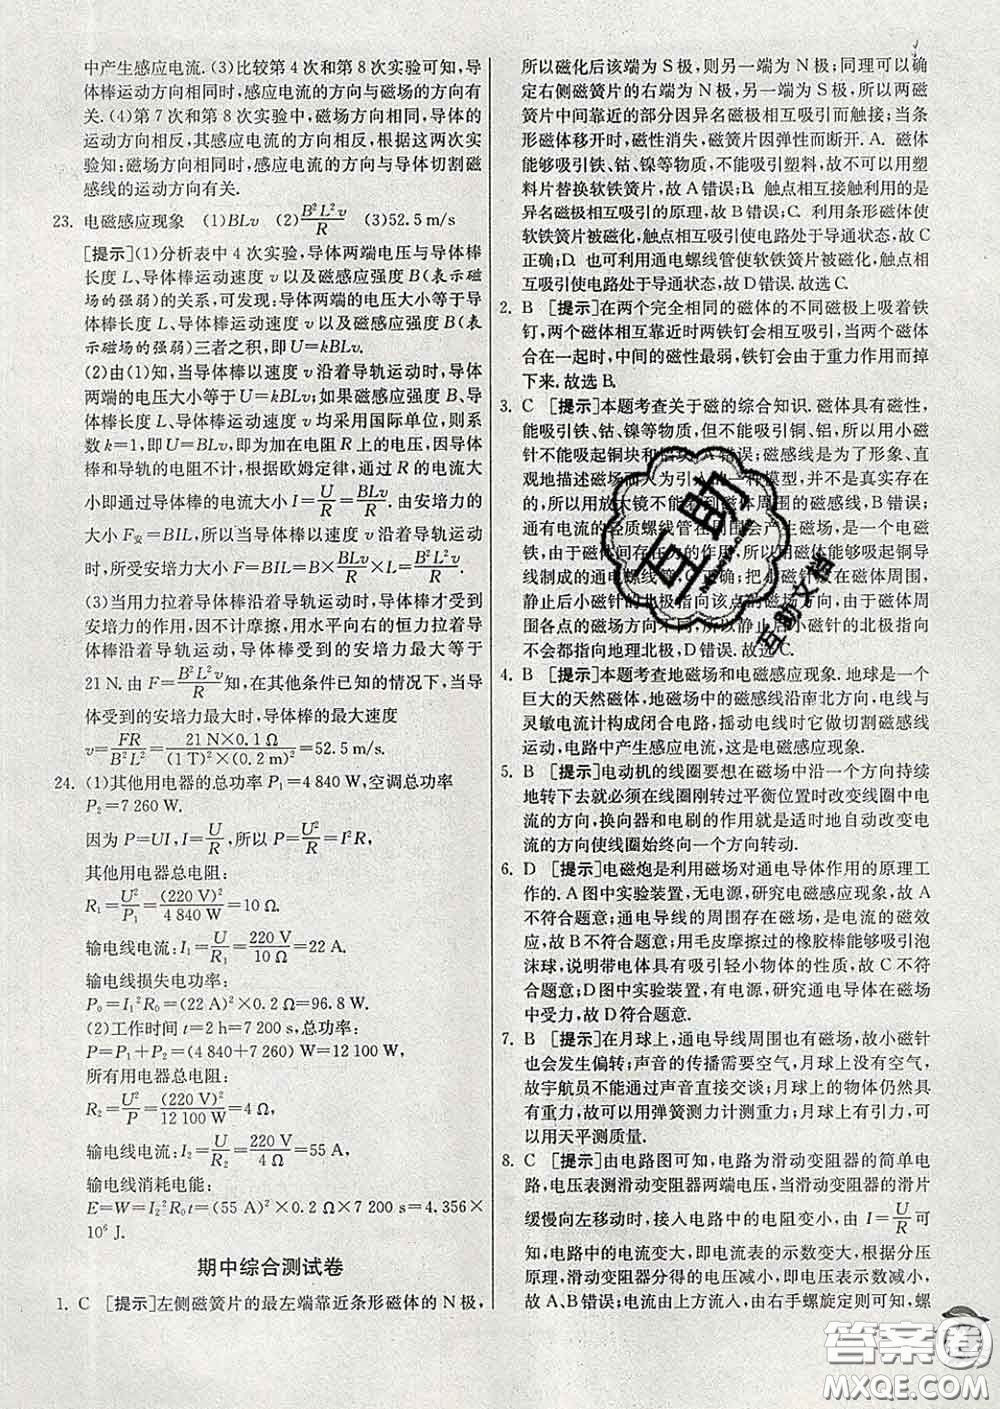 中产生感应电流.(3)比较第4次和第8次实验可知,导
体棒运动方向相同时,感应电流的方向与磁场的方向有
关.(4)第7次和第8次实验中,磁场方向相同,导体的
运动方向相反,其感应电流的方向相反,根据这两次实
验知:磁场方向相同时,感应电流的方向与导体切割磁
感线的运动方向有关.
23. 电磁感应现象 (1)BLv (2)B²L²v/R (3)52.5 m/s
[提示](1)分析表中4次实验,导体两端电压与导体棒
长度L、导体棒运动速度v以及磁感应强度B(表示磁
场的强弱)的关系,可发现:导体两端的电压大小等于导
体棒长度L、导体棒运动速度v以及磁感应强度B(表
示磁场的强弱)三者之积,即U=kBLv.
(2)由(1)知,当导体棒以速度v沿着导轨运动时,导体
两端的电压大小等于U=kBLv;如果磁感应强度B、导
体棒长度L、导体棒运动速度v均采用国际单位,则系
数k=1,即U=BLv,即为加在电阻R上的电压,因导体
棒和导轨的电阻不计,根据欧姆定律,通过R的电流大
小即通过导体棒的电流大小I=U/R=BLv/R. 由安培力的
大小F安=BIL,所以当导体棒以速度v沿着导轨运动
时,所受安培力大小F=BIL=B×BLv/R×L=B²L²v/R.
(3)当用力拉着导体棒沿着导轨运动时,导体棒才受到
安培力的作用,因不计摩擦,用水平向右的恒力拉着导
体棒沿着导轨运动时,导体棒受到的安培力最大等于
21 N.由F=B²L²v/R知,在其他条件已知的情况下,当导
体受到的安培力最大时,导体棒的最大速度
v=FR/B²L²=21 N×0.1 Ω/(1 T)²×(0.2 m)²=52.5 m/s.
24. (1)其他用电器的总功率P₁=4 840 W,空调总功率
P₂=7 260 W.
因为P=UI,I=U/R,所以P=U²/R=I²R,
其他用电器总电阻:
R₁=U²/P₁=(220 V)²/4 840 W=10 Ω.
输电线电流:I₁=U/R₁=220 V/10 Ω=22 A.
输电线损失电功率:
P₀=I₁²R₀=(22 A)²×0.2 Ω=96.8 W.
(2)工作时间t=2 h=7 200 s,总功率:
P=P₁+P₂=(4 840+7 260) W=12 100 W,
所有用电器总电阻:
R₂=U²/P=(220 V)²/12 100 W=4 Ω,
输电线电流:I₂=U/R₂=220 V/4 Ω=55 A,
输电线消耗电能:
E=W=I₂²R₀t=(55 A)²×0.2 Ω×7 200 s=4.356×
10⁶ J.
期中综合测试卷
1. C [提示]左侧磁簧片的最左端靠近条形磁体的N极,
所以磁化后该端为S极,则另一端为N极;同理可以确
定右侧磁簧片的右端为N极,另一端为S极,所以两磁
簧片中间靠近的部分因异名磁极相互吸引而触接;当条
形磁体移开时,磁性消失,磁簧片因弹性而断开. A. 磁体
能够吸引铁、钴、镍等物质,不能吸引塑料,故不可以用塑
料片替换软铁簧片,故A错误;B. 触点相互接触利用的是
异名磁极相互吸引的原理,故B错误;C. 利用条形磁体使
软铁簧片被磁化,触点相互吸引使电路处于导通状态,故C
正确;D. 也可利用通电螺线管使软铁簧片被磁化,触点相
互吸引使电路处于导通状态,故D错误.故选C.
2. B [提示]在两个完全相同的磁体的不同磁极上吸着铁
钉,两个磁体相互靠近时两铁钉会相互吸引,当两个磁体
合在一起时,中间的磁性最弱,铁钉会由于重力作用而掉
下来.故选B.
3. C [提示]本题考查关于磁的综合知识.磁体具有磁性,
能吸引铁、钴、镍等物质,但不能吸引铜、铝,所以用小磁
针不能吸起铜块和铝块,A错误;磁感线是为了形象、直
观地描述磁场而人为引入的一种模型,并不是真实存在
的,所以用放大镜不能看到磁体周围的磁感线,B错误;
通有电流的轻质螺线管在周围会产生磁场,是一个电磁
铁,由于磁体间存在力的作用,所以用磁体能够吸起铜导
线制成的通电螺线管,C正确;把小磁针放在磁体周围,
静止后小磁针的北极指向该点的磁场方向,由于磁体周
围各点的磁场方向不同,所以静止后小磁针的北极指向
不会都指向地理北极,D错误.故选C.
4. B [提示]本题考查地磁场和电磁感应现象.地球是一个
巨大的天然磁体,地磁场中的磁感线沿南北方向,电线与
灵敏电流计构成闭合电路,摇动电线时它做切割磁感线
运动,电路中产生感应电流,这是电磁感应现象.
5. B [提示]电动机的线圈要想在磁场中沿一个方向持续
地转下去就必须在线圈刚转过平衡位置时改变线圈中电
流的方向,换向器和电刷的作用就是适时地自动改变电
流的方向使线圈始终向一个方向转动.
6. D [提示]电磁炮是利用磁场对通电导体作用的原理工
作的.A图中实验装置,无电源,研究电磁感应现象,故A
不符合题意;通电导线的周围存在磁场,是电流的磁效
应,故B不符合题意;用毛皮摩擦过的橡胶棒能够吸引泡
沫球,说明带电体具有吸引轻小物体的性质,故C不符合
题意;D图中实验装置,有电源,研究通电导体在磁场
中受力,故D符合题意.
7. B [提示]在月球上,通电导线周围也有磁场,故小磁针
也会发生偏转;声音的传播需要空气,月球上没有空气,
故宇航员不能通过声音直接交谈;月球上的物体仍然具
有重力,故可以用弹簧测力计测重力;月球上有引力,可
以用天平测质量.
8. C [提示]由电路图可知,电路为滑动变阻器的简单电
路,电压表测滑动变阻器两端电压,当滑动变阻器的滑片
缓慢向左移动时,接入电路中的电阻变小,由I=U/R可
知,电路中的电流变大,即电流表的示数变大,根据分压
原理,滑动变阻器分得的电压变小,即电压表示数减小,
故A、B错误;电流由上方流入,由右手螺旋定则可知,螺
互助
互助文档
答案圈
MXQE.COM